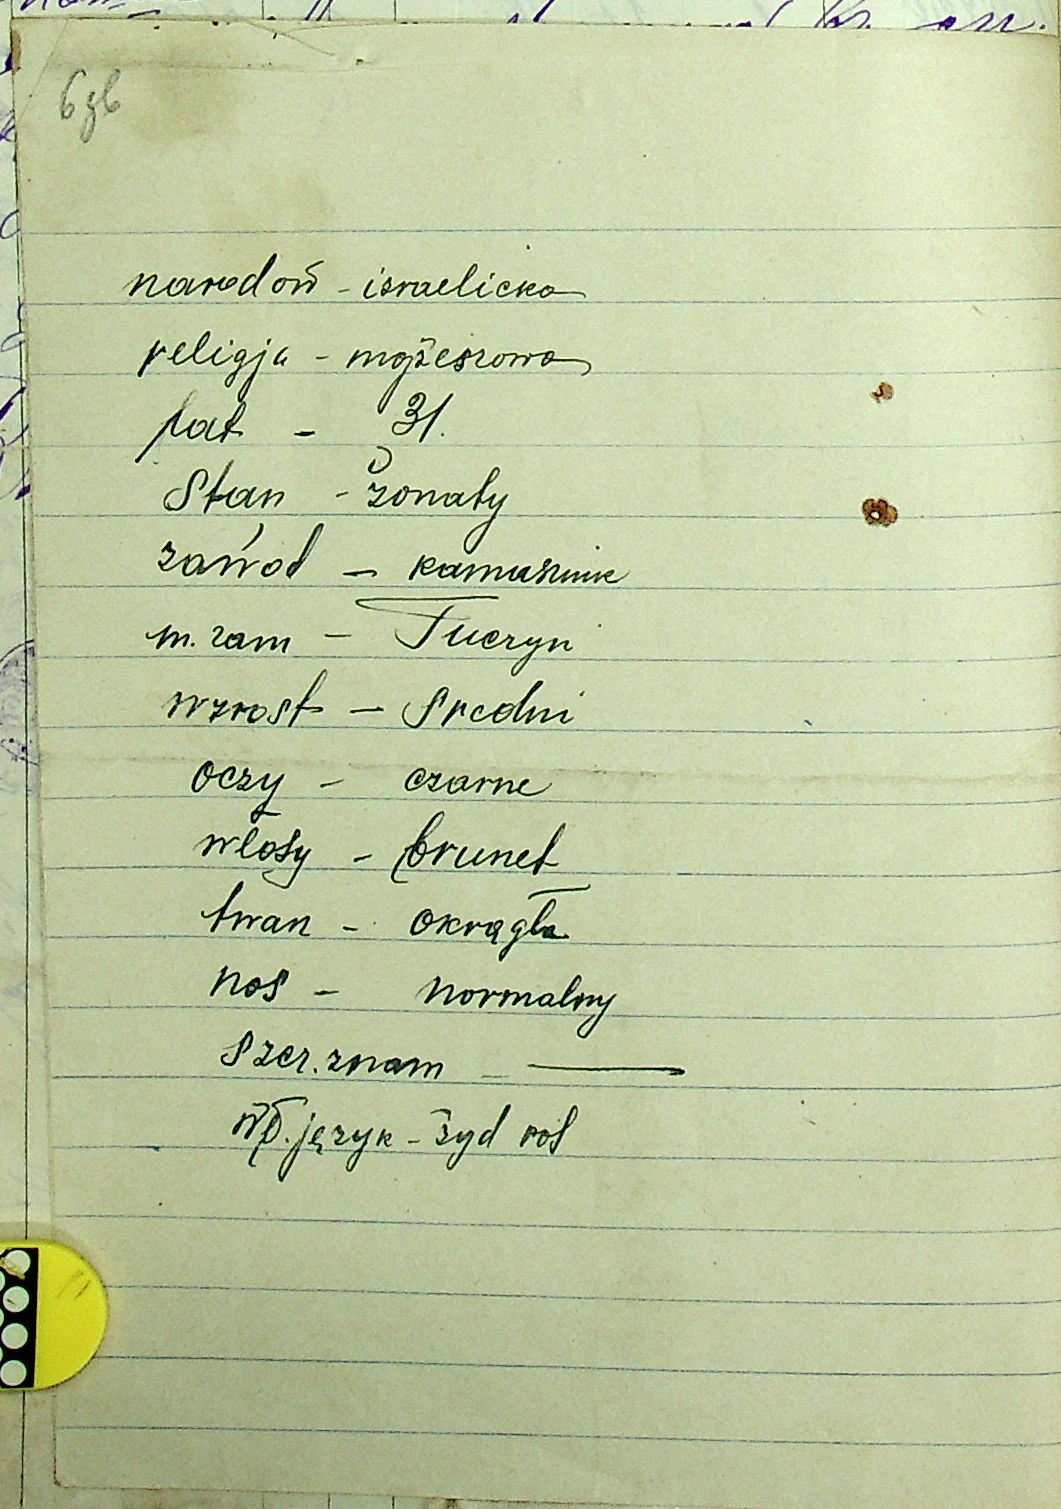 6zb
narodow - israelicka
religja - mojżeszowa
lat - 31.
Stan - żonaty
zawód - kamasznik
m. zam - Tuczyn
wzrost - sredni
oczy - czarne
włosy - brunet
twarz - okrągła
nos - normalny
szcz. znam - ———
Wł. język - żyd ros